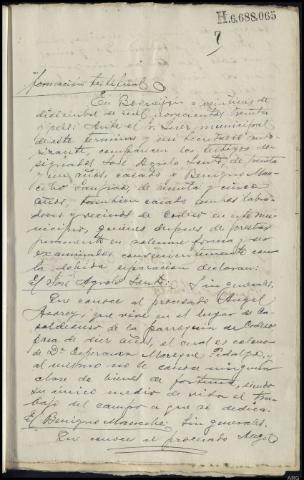 H.6.688.065
Información testifical
En a veintinueve de
diciembre de mil novecientos treinta
y seis: Ante el Sr. Juez municipal
de este término y su Secretario
comparecen los testigos de-
signados José Agrelo Santos de treinta
y un años, casado y Benigno
de treinta y cinco
años, también casado ambos labra-
dores y vecinos de en este mu-
nicipio, quienes después de prestar
juramento en solemne forma y se
examinados convenientemente con
la debida separación declaran:
El José Agrelo Santos. Sin generales.
Que conoce al procesado Angel
que vive en el lugar de Ca-
saldeiras de la parroquia de
hace de diez años, el cual es colono
de Dª Esperanza Hidalgo, y
al mismo no le conoce ninguna
clase de bienes de fortuna, siendo
su único medio de vida el tra-
bajo del campo a que se dedica.
El Benigno Sin generales.
Que conoce al procesado Angel